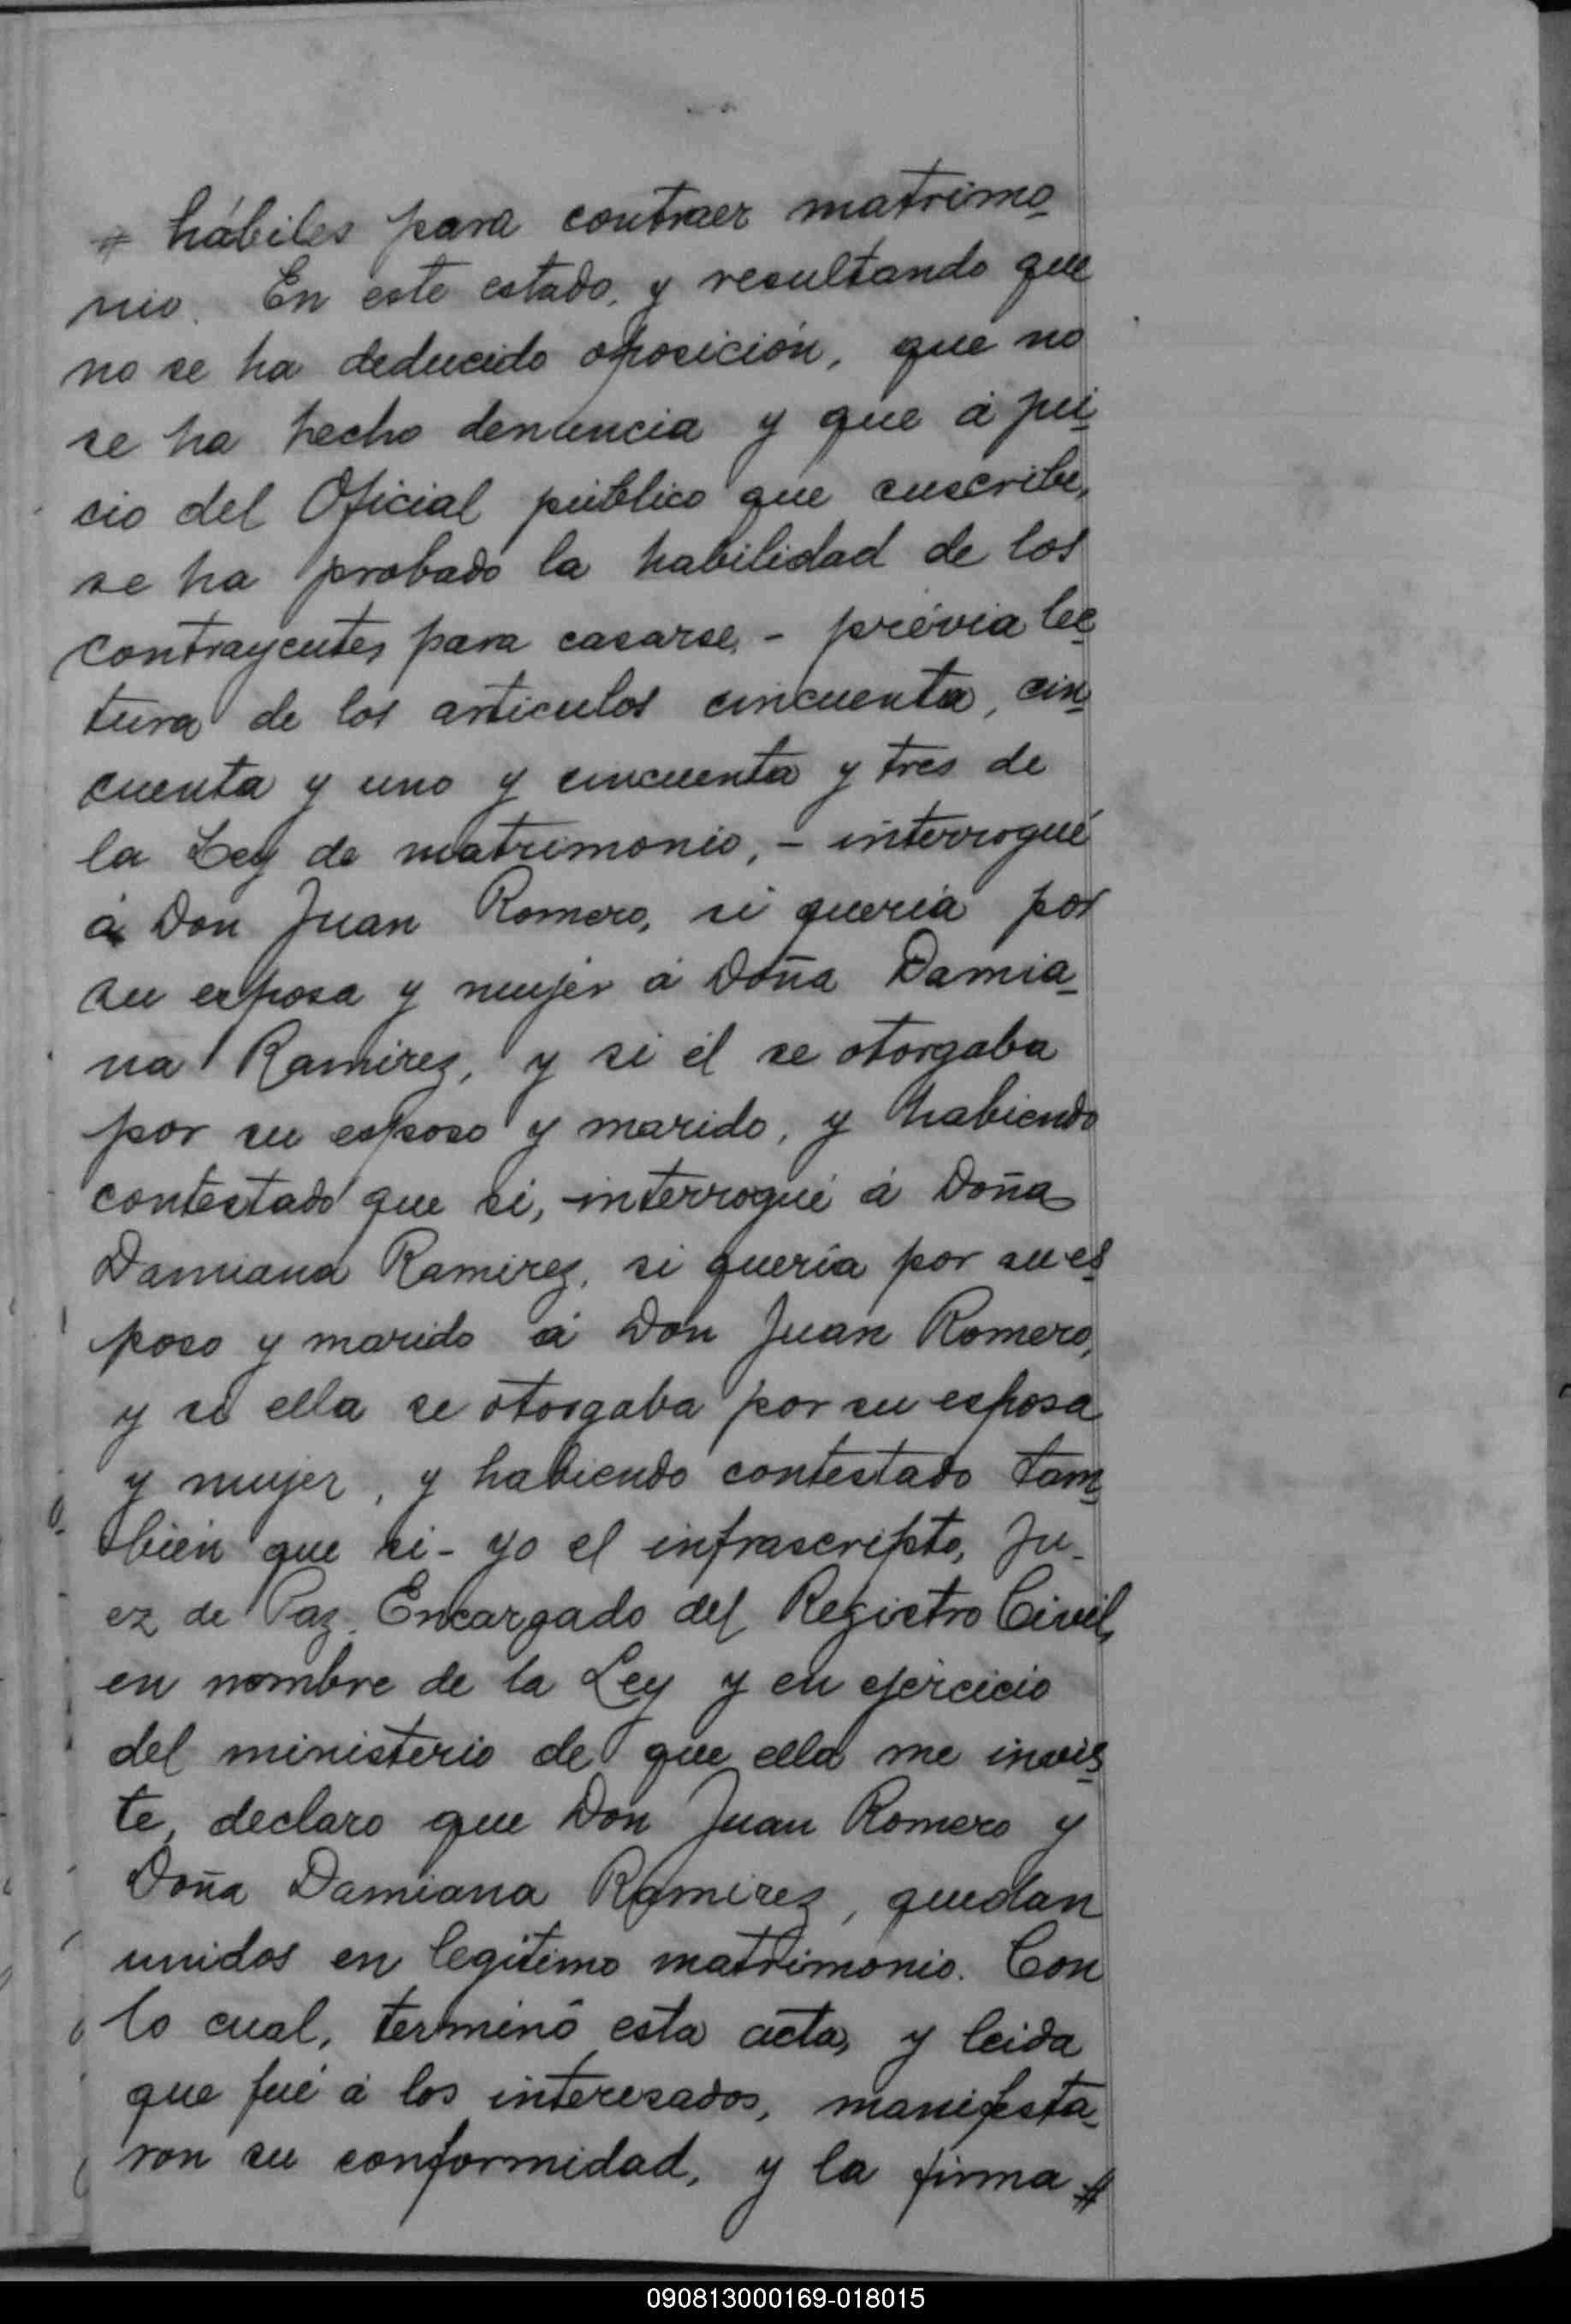 # hábiles para contraer matrimo-
nio. En este estado, y resultando que
no se ha deducido oposición, que no
se ha hecho denuncia y que á jui-
cio del Oficial público que suscribe,
se ha probado la habilidad de los
contrayentes para casarse, - prévia lec-
tura de los articulos cincuenta, cin-
cuenta y uno y cincuenta y tres de
la Ley de matrimonio, - interrogué
á Don Juan Romero, si queria por
su esposa y mujer á Doña Damia-
na Ramirez, y si él se otorgaba
por su esposo y marido, y habiendo
contestado que si, - interrogué á Doña
Damiana Ramirez, si queria por su es-
poso y marido á Don Juan Romero,
y si ella se otorgaba por su esposa
y mujer, y habiendo contestado tam-
bién que si - yo el infrascripto, Ju-
ez de Paz Encargado del Registro Civil,
en nombre de la Ley y en ejercicio
del ministerio de que ella me invis-
te, declaro que Don Juan Romero y
Doña Damiana Ramirez, quedan
unidos en legítimo matrimonio. Con
lo cual, terminó esta acta, y leida
que fué á los interesados, manifesta-
ron su conformidad, y la firma #
090813000169-018015